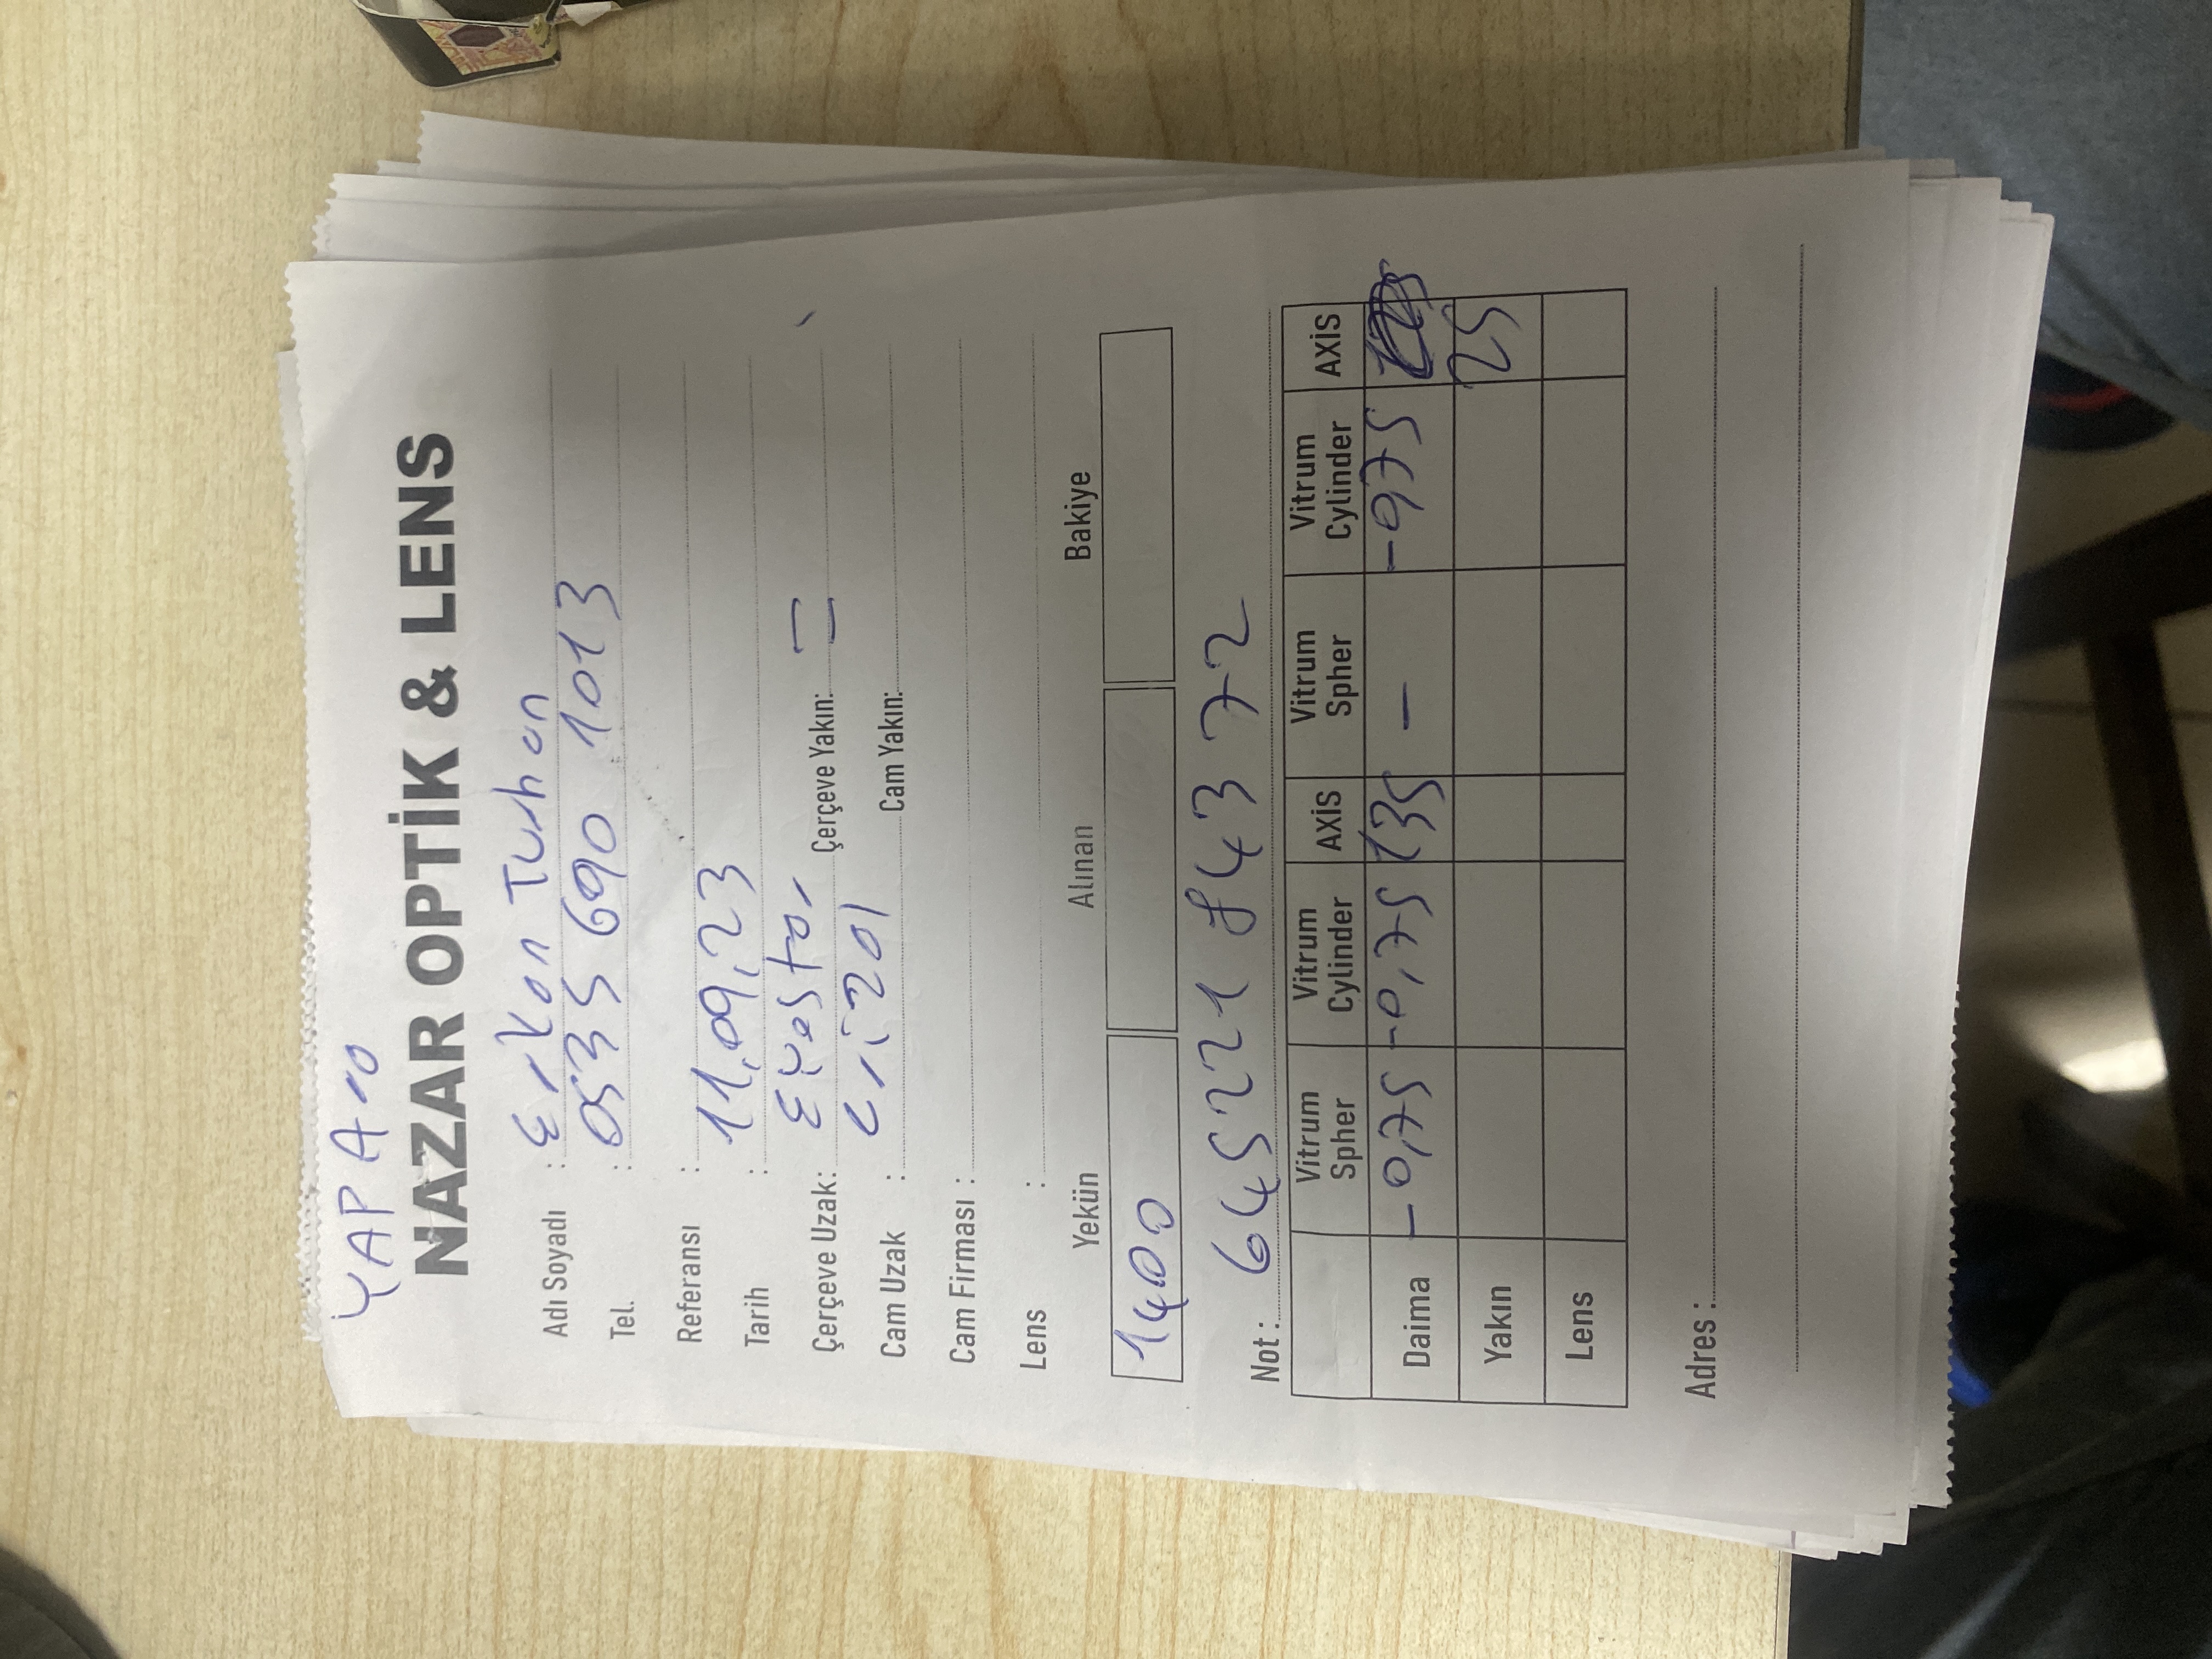 YAP
NAZAR OPTİK & LENS
Adı Soyadı : Erkan Turhan
Tel. : 0535 690 1013
Referansı :
Tarih : 11,09,23
Çerçeve Uzak: Eyestar Çerçeve Yakın: =
Cam Uzak : Crizal Cam Yakın:
Cam Firması :
Lens :
Yekün Alınan Bakiye
1400
Not : 645221 84372
Vitrum Spher Vitrum Cylinder AXİS Vitrum Spher Vitrum Cylinder AXİS
Daima -0,75 -0,75 135 - -0,75
Yakın 25
Lens
Adres :